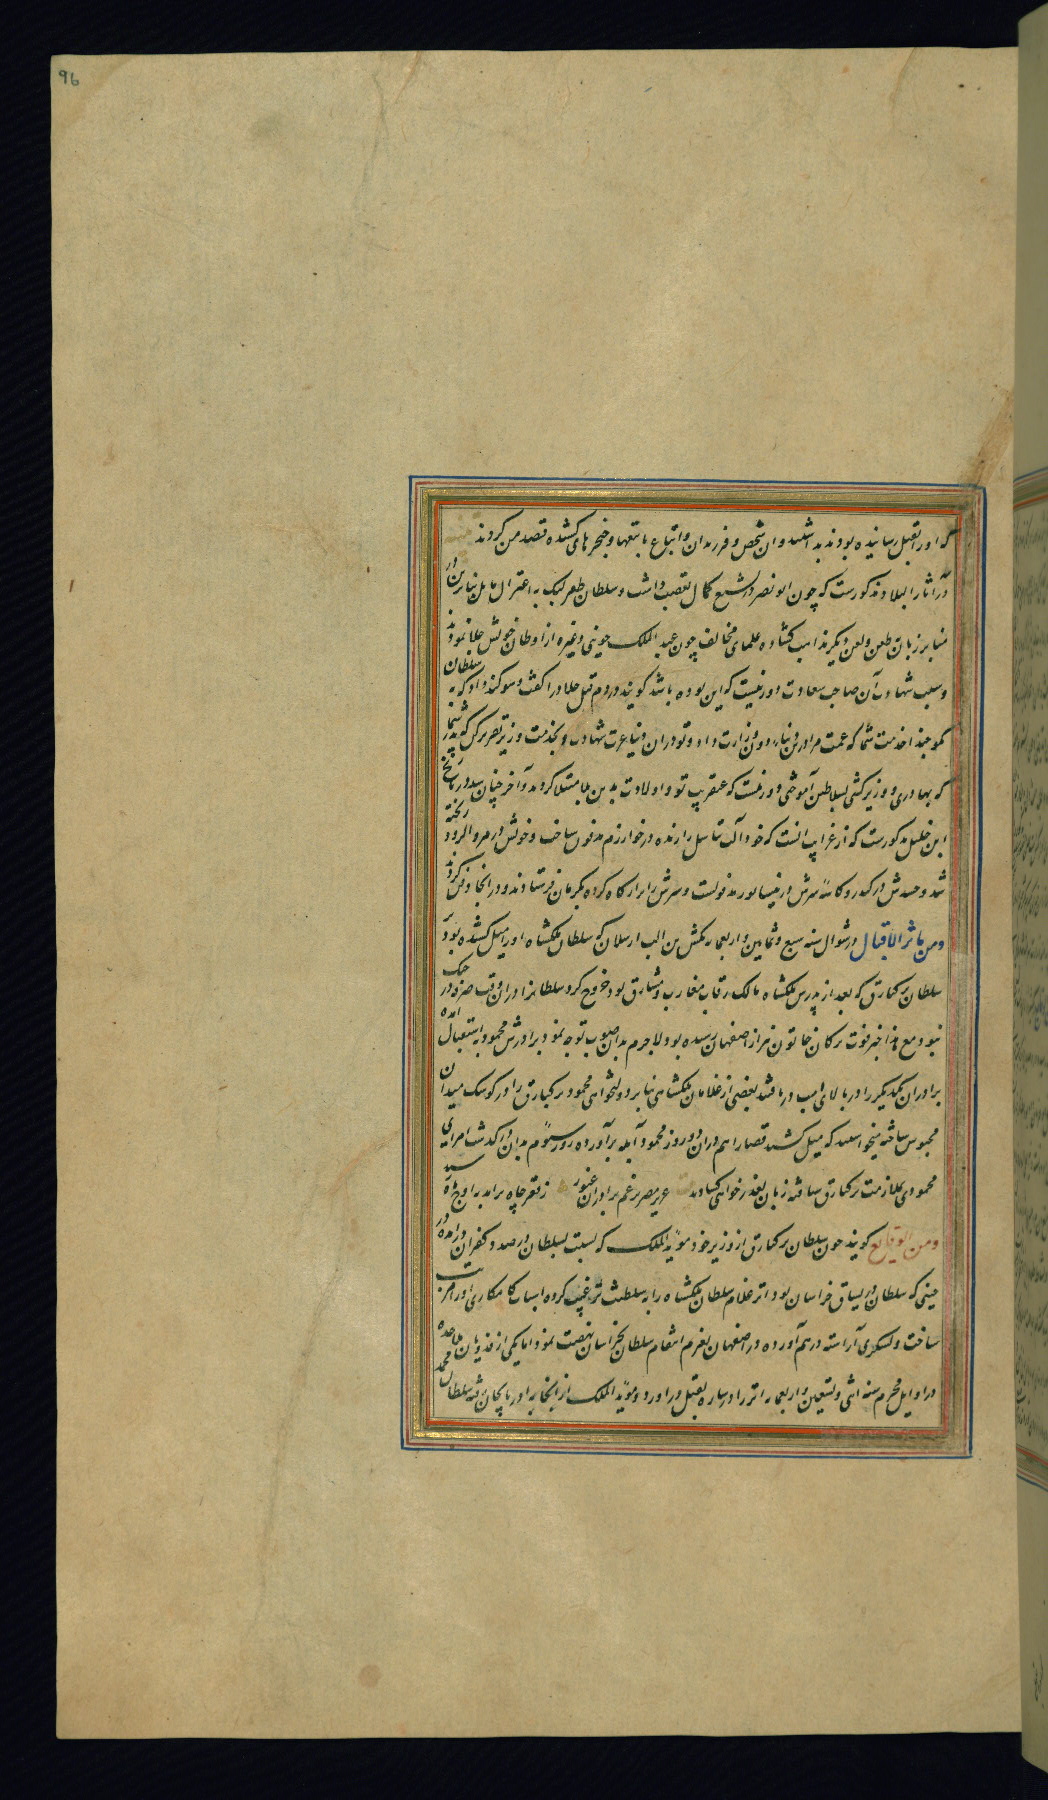 96
که او را بقتل رسانیده بودند بدانستند و آن شخص و فرزندان و اتباع با تیغها و خنجرهای کشیده قصد من کردند
در آثار البلاد مذکورست که چون ابو نصر در تشیع کمال تعصب داشت و سلطان طغرلبک به اعتزال مایل بنابرین در
منابر زبان طعن و لعن دیگر مذاهب کشاده علمای مخالف چون عبد الملک جوینی و غیره از اوطان خویش جلا نمودند
و سبب شهادت آن صاحب سعادت دور نیست که این بوده باشد گویند در دم قتل جلاد را گفت و سوگند داد که به سلطان
بگو خدمت شما که عمت مرا درین دنیا وزارت داد و تو در آن دنیا عزت شهادت و بخدمت وزیر تقریر کن که
که بهادری و وزیر کشی بسلاطین آموختی دور نیست که عنقریب تو و اولادت بدین بلا مبتلا گردند و آخر چنان شد در تاریخ
ابن خلیل مذکورست که از غرایب آنست که خود آلت تناسل را زنده در خوارزم مدفون ساخت و خونش در مرو الرود ریخته
شد و جسدش در کندر و کاسه سرش در نیشابور مدفونست و سرش را پر از کاه کرده بکرمان فرستادند و در آنجا دفن کردند
ومن مآثر الاقبال در شوال سنه سبع و ثمانین و اربعمایه تکش بن الب ارسلان که سلطان ملکشاه او را میل کشیده بود بر
سلطان برکیارق که بعد از پدرش ملکشاه مالک رقاب مغارب و مشارق بود خروج کرد سلطان را در آن وقت جنک
نبود مع هذا خبر فوت ترکان خاتون نیز از اصفهان رسیده بود لاجرم بدان صوب توجه نمود برادرش محمود به استقبال آمده
برادران یکدیگر را در بالای اسب دریافتند بعضی از غلامان ملکشاهی بنابر دولتخواهی محمود برکیارق را در کوشک میدان
محبوس ساخته میخواستند که میل کشند قضا را هم در آن دو روز محمود آبله برآورده روز سیوم بدان درگذشت امرای
محمودی بملازمت برکیارق شتافته زبان بعذرخواهی کشادند عزیز مصر برغم برادران غیور ز قعر چاه برآمد به اوج ماه رسید
ومن الوقایع گویند چون سلطان برکیارق از وزیر خود مؤید الملک که نسبت بسلطان در صدد کفران درآمده در
حینی که سلطان در یساق خراسان بود اتر غلام سلطان ملکشاه را به سلطنت ترغیب کرده اسباب کامکاری او را مرتب
ساخت و لشکری آراسته درهم آورده در اصفهان بعزم انتقام سلطان بخراسان نهضت نمود اما یکی از فدویان ملاحده
در اوایل محرم سنه اثنی و تسعین و اربعمایه اتر را در ساوه بقتل درآورد و مؤید الملک از آنجا به آذربایجان رفته سلطان محمد